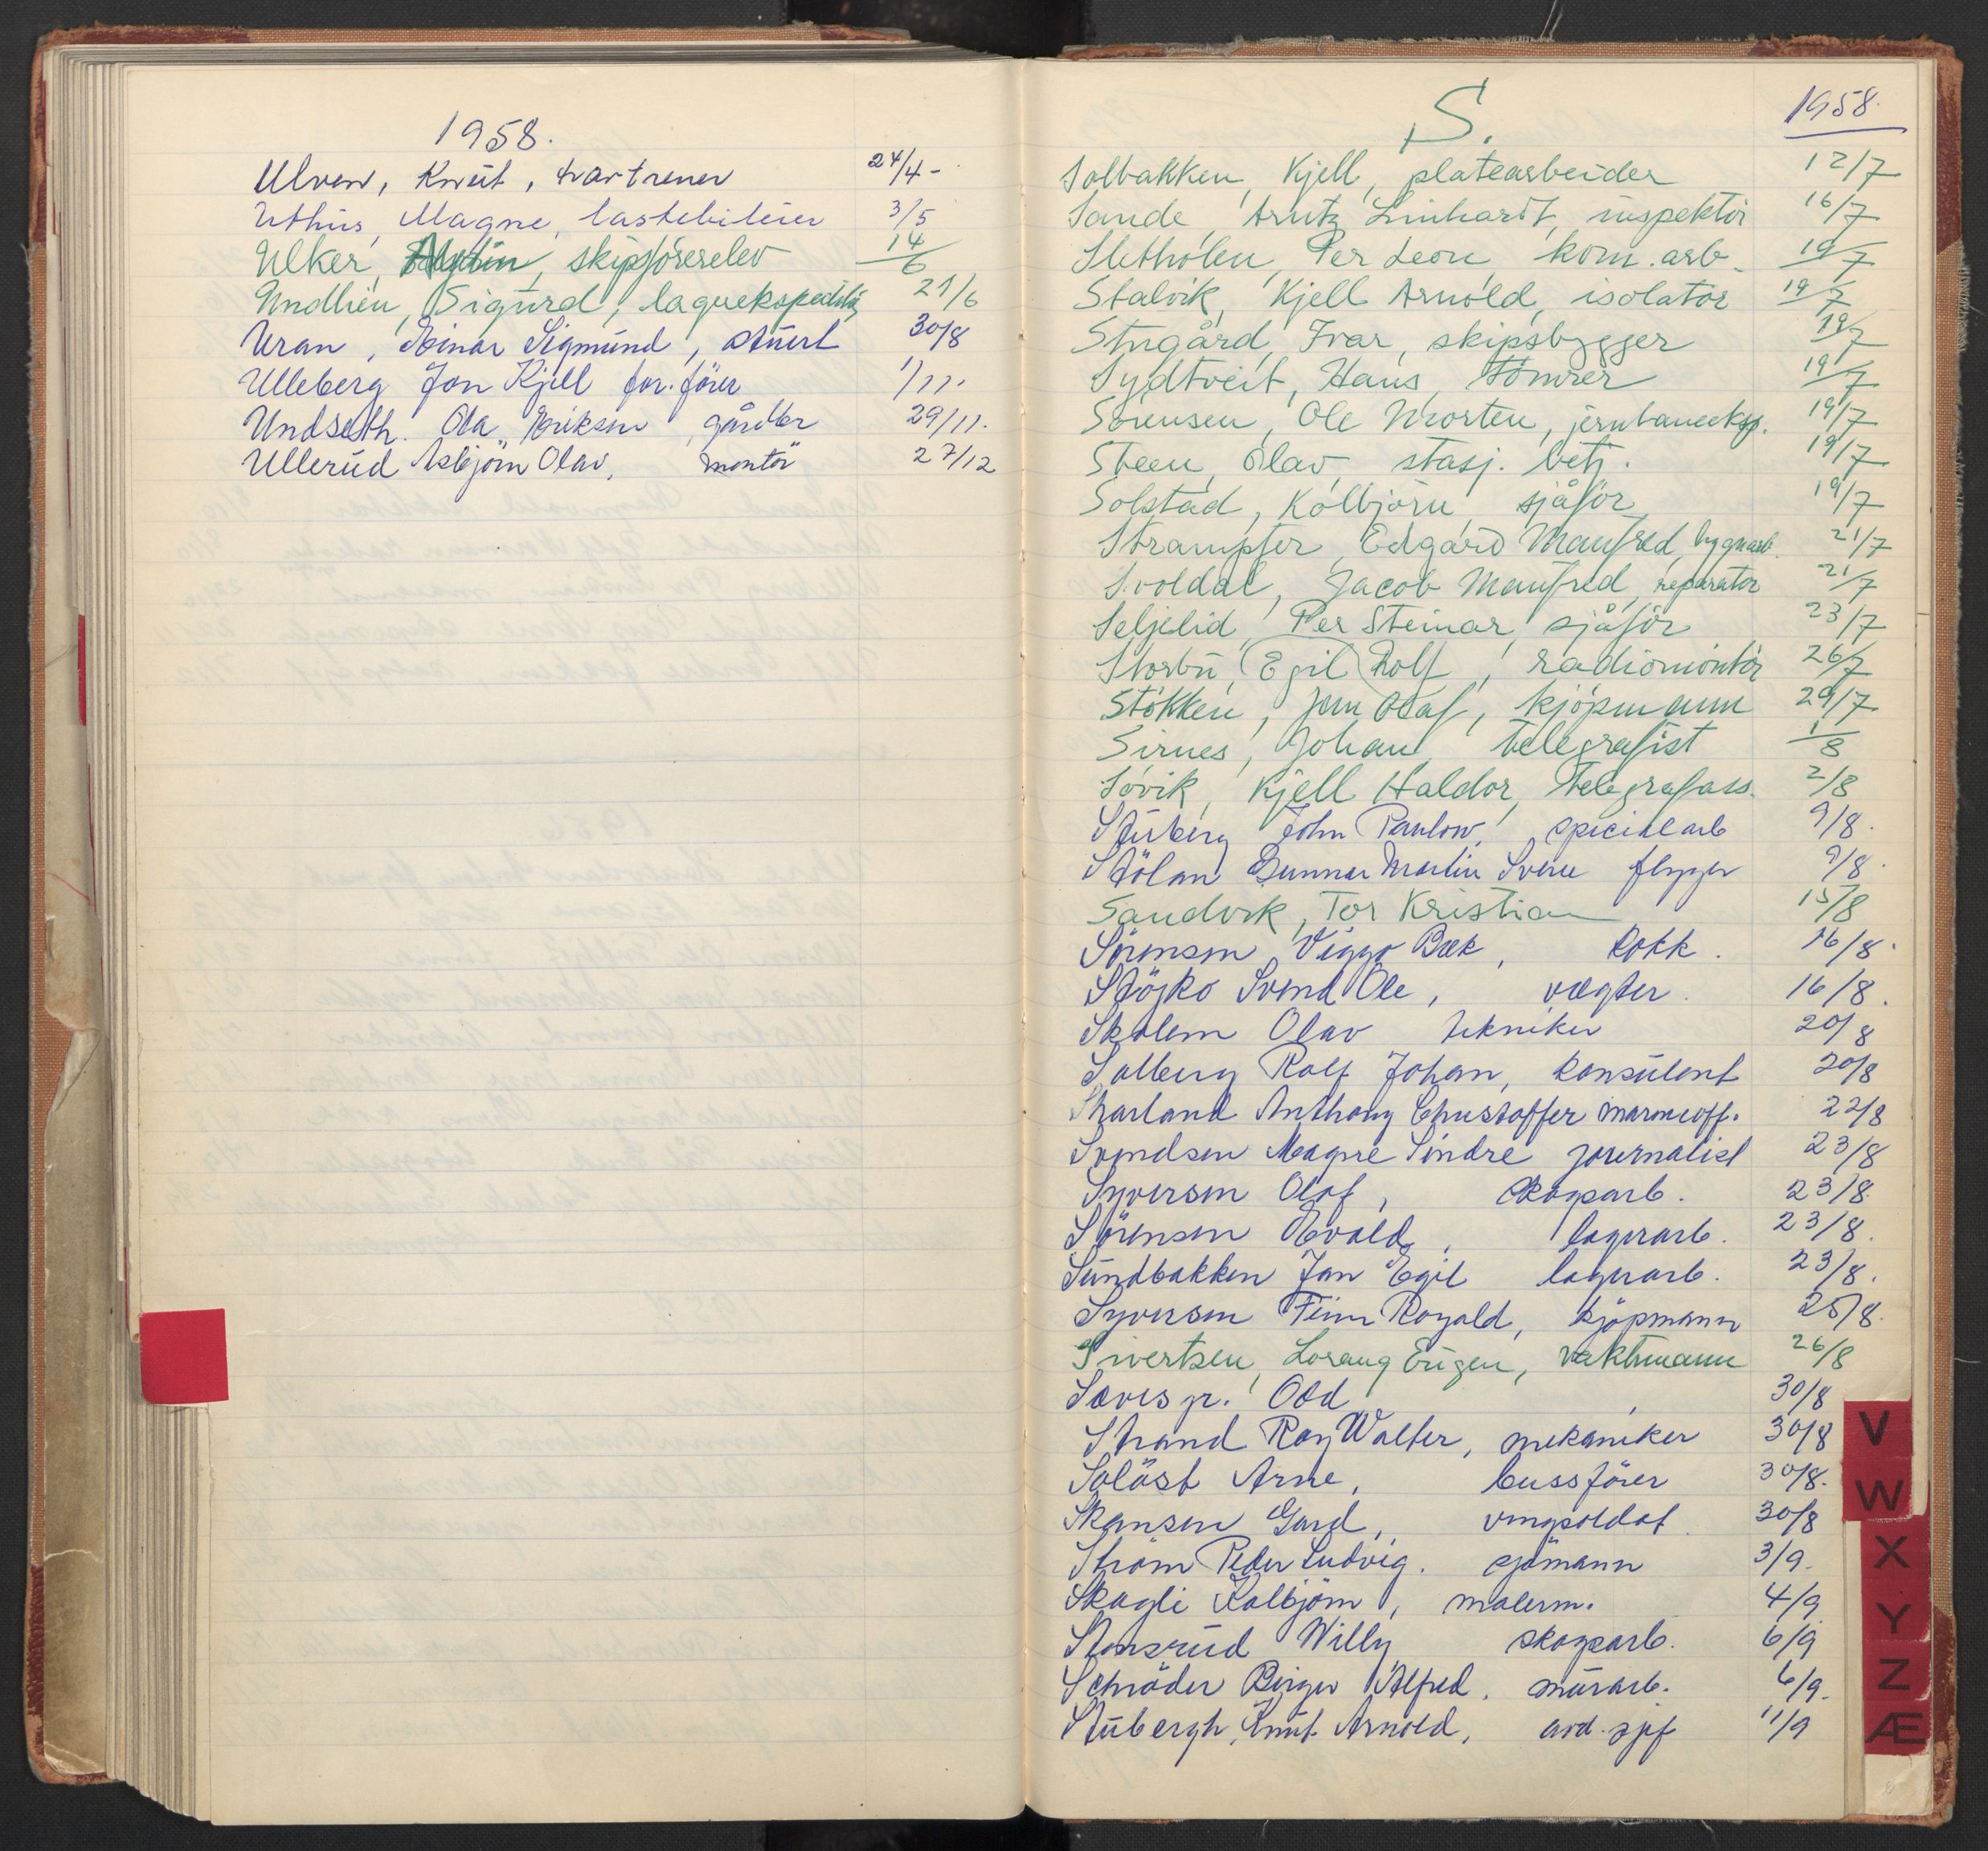 1958.
Ulven, Knut, travtrener 24/4-
Uthus, Magne, lastebileier 3/5
Ulker, skipsförerelev 14/6
Undlien, Sigurd, 21/6
Uran, Einar Sigmund, stuert 30/8
Ulleberg Jon Kjell for.förer 1/11.
Undseth. Ola Eriksen, gårdbr 29/11.
Ullerud Asbjörn Olav, montör 27/12
S. 1958.
Solbakken, Kjell, platearbeider 12/7
Sande, Arntz Linhardt, inspektör 16/7
Sletholen, Per Leon, kom.arb. 19/7
Stalvik, Kjell Arnold, isolatör 19/7
Stugård, Ivar, skipsbygger 19/7
Sydtveit, Hans, tömrer 19/7
Sörensen, Ole Morten, jernbaneeksp. 19/7
Steen, Olav, stasj. betj. 19/7
Solstad, Kolbjörn, sjåför 19/7
Strampfer, Edgard Manfred, bygnarb. 21/7
Svoldal, Jacob Manfred, reparatör 21/7
Seljelid, Per Steinar, sjåför 23/7
Storbu, (Egil) Rolf, radiomontör 26/7
Stökken, Jon Olaf, kjöpmann 29/7
Sirnes, Johan, telegrafist 1/8
Sövik, Kjell Haldor, telegrafass. 2/8
Stuberg John Paulow, specialarb 9/8.
Stölan Gunnar Martin Sverre flyger 9/8.
Sandvik, Tor Kristian 15/8
Sörensen Viggo Bæk, kokk. 16/8.
Stöjko Svend Ole, vægter. 16/8.
Skolem Olav tekniker 20/8
Solberg Rolf Johan, konsulent 20/8
Skarland Anthony Christoffer marineoff. 22/8
Svendsen Magne Sindre journalist 23/8
Syversen Olaf, skogsarb. 23/8.
Sörensen Evald, lagerarb. 23/8.
Sundbakken Jan Egil lagerarb. 23/8.
Syversen Finn Roald, kjöpmann 25/8.
Sivertsen, Lorang Eugen, vaktmann 26/8
Sæves gr. Odd, 30/8
Strand Roy Walter, mekaniker 30/8
Solöst Arne, bussförer 30/8.
Skansen Gard, vingsoldat. 30/8
Ström Peder Ludvig. sjömann 3/9.
Skogli Kolbjörn, malerm. 4/9
Stensrud Willy skogsarb. 6/9
Schröder Birger Alfred. murarb. 6/9.
Stubergh, Knut Arnold, avd.sjef 11/9
V
W
X
Y
Z
Æ